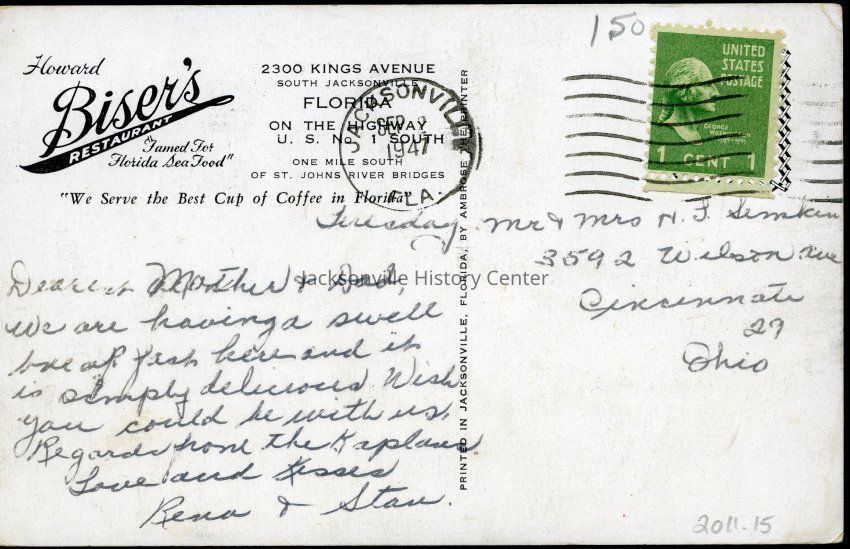 150
Howard
Biser's
RESTAURANT
"Famed For
Florida Sea Food"
2300 KINGS AVENUE
SOUTH JACKSONVILLE
FLORIDA
ON THE HIGHWAY
U. S. No. 1 SOUTH
ONE MILE SOUTH
OF ST. JOHNS RIVER BRIDGES
"We Serve the Best Cup of Coffee in Florida"
JACKSONVILLE
SEP 2
1947
FLA.
UNITED
STATES
POSTAGE
GEORGE
WASHINGTON
1 CENT 1
Tuesday
Dearest Mother & Dad,
We are having a swell
breakfast here and it
is simply delicious Wish
you could be with us.
Regards from the Kaplans
Love and Kisses
Rena & Stan.
PRINTED IN JACKSONVILLE, FLORIDA, BY AMBROSE THE PRINTER
Mr & Mrs N. F. Simkin
3592 Wilson Ave
Cincinnati
29
Ohio
Jacksonville History Center
2011.15